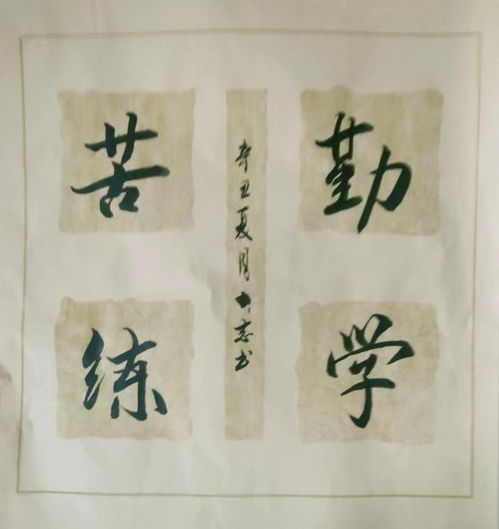 勤学
苦练
辛丑夏月大志书